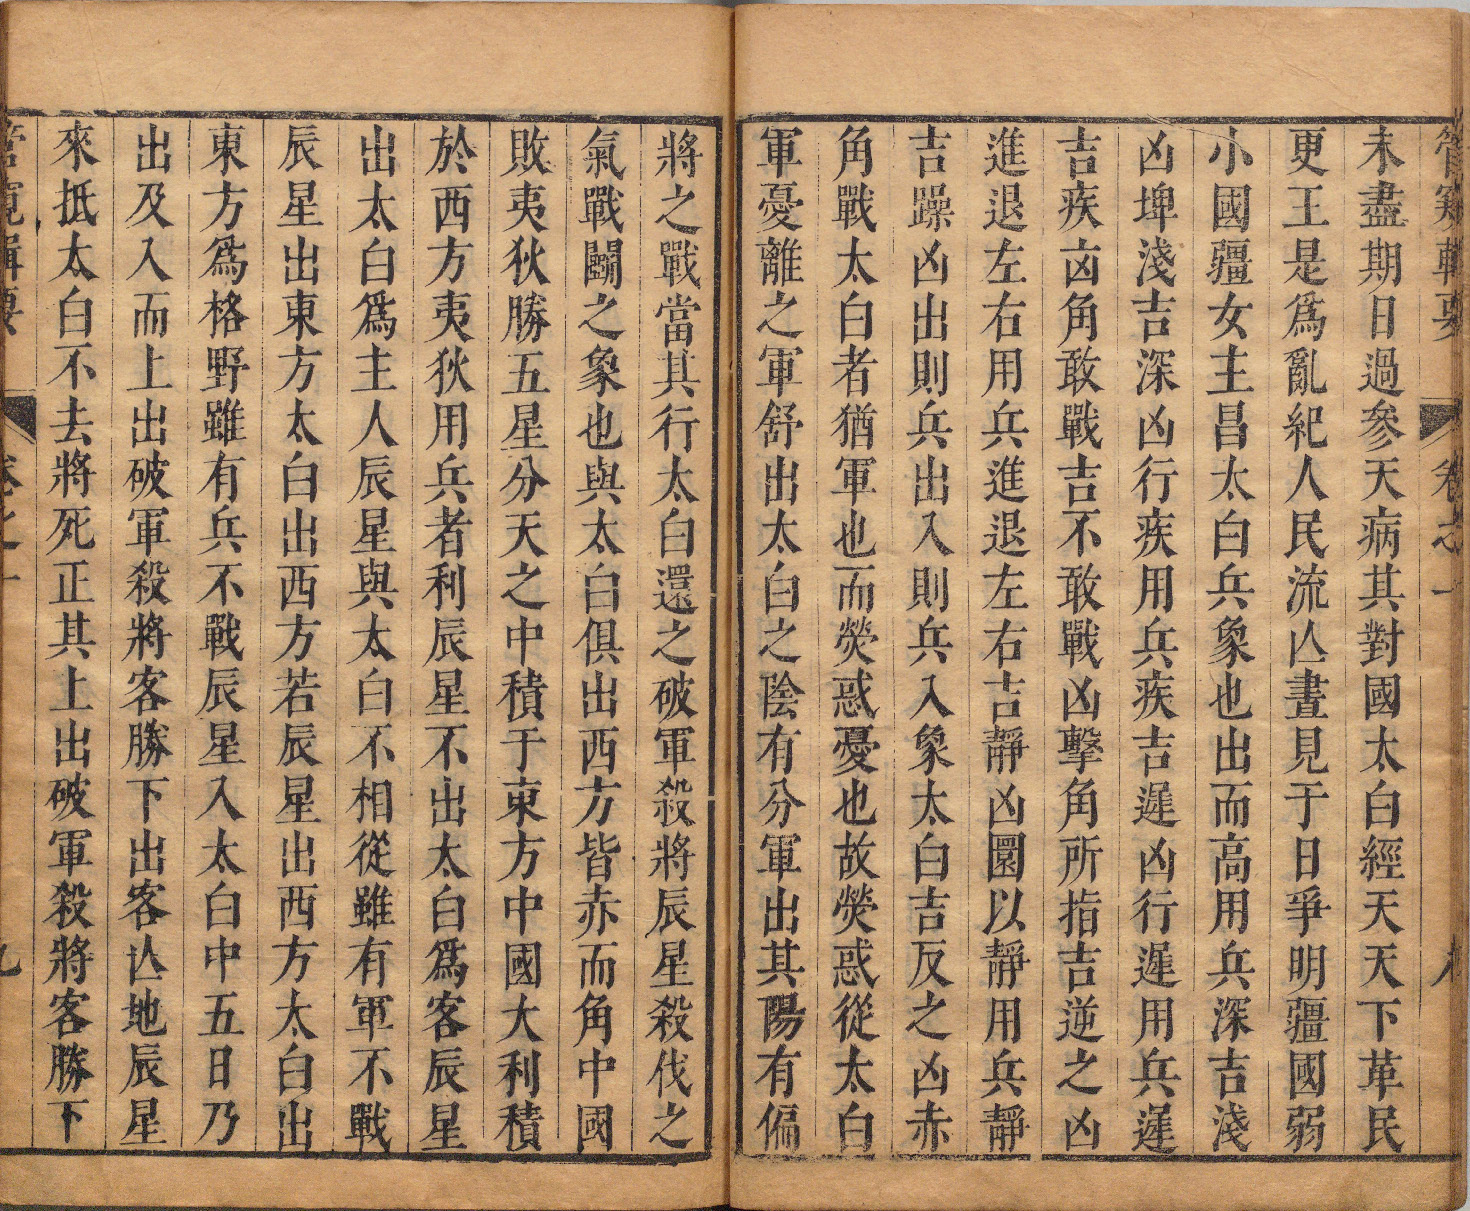 管窺輯要 卷之一
未盡期日過參天病其對國太白經天天下革民
更王是爲亂紀人民流亾晝見于日爭明疆國弱
小國疆女主昌太白兵象也出而高用兵深吉淺
凶埤淺吉深凶行疾用兵疾吉遲凶行遲用兵遲
吉疾凶角敢戰吉不敢戰凶擊角所指吉逆之凶
進退左右用兵進退左右吉靜凶圜以靜用兵靜
吉躁凶出則兵出入則兵入象太白吉反之凶赤
角戰太白者猶軍也而熒惑憂也故熒惑從太白
軍憂離之軍舒出太白之陰有分軍出其陽有偏
將之戰當其行太白還之破軍殺將辰星殺伐之
氣戰鬭之象也與太白俱出西方皆赤而角中國
敗夷狄勝五星分天之中積于東方中國大利積
於西方夷狄用兵者利辰星不出太白爲客辰星
出太白爲主人辰星與太白不相從雖有軍不戰
辰星出東方太白出西方若辰星出西方太白出
東方爲格野雖有兵不戰辰星入太白中五日乃
出及入而上出破軍殺將客勝下出客亾地辰星
來抵太白不去將死正其上出破軍殺將客勝下
管窺輯要 卷之一 九